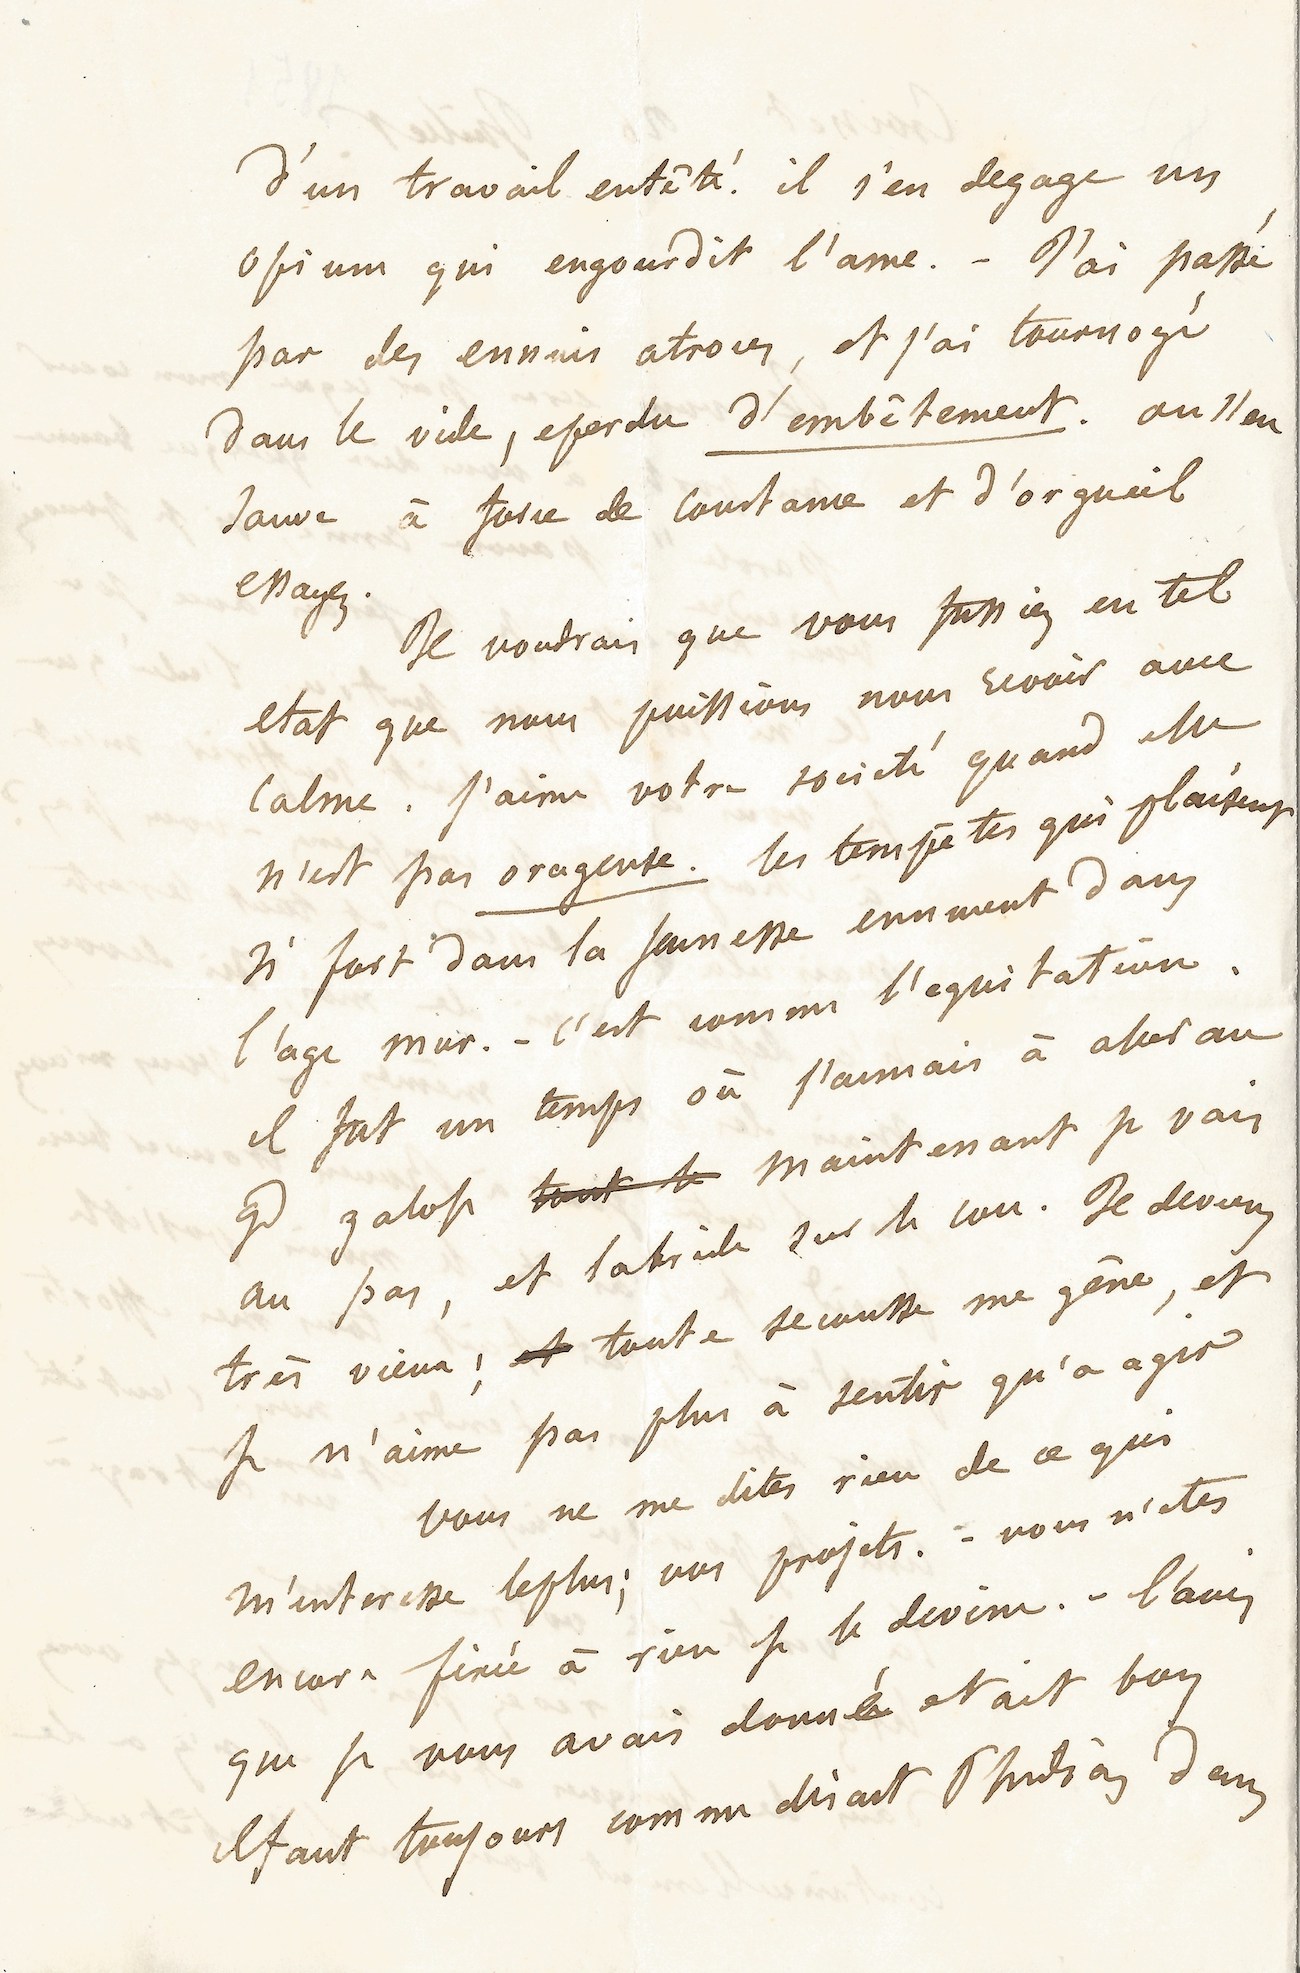 d'un travail entêté. il s'en degage un
opium qui engourdit l'ame. - J'ai passé
par des ennuis atroces, et j'ai tournoyé
dans le vide, eperdu d'embêtement. on s'en
sauve à force de constance et d'orgueil
essayez.
Je voudrais que vous fussiez en tel
etat que nous puissions nous revoir avec
calme. j'aime votre societé quand elle
n'est pas orageuse. les tempêtes qui plaisent
si fort dans la jeunesse ennuient dans
l'age mur. - c'est comme l'equitation.
il fut un temps où j'aimais à aller au
gd galop tout le maintenant je vais
au pas, et la bride sur le cou. Je deviens
très vieux; et toute secousse me gêne, et
je n'aime pas plus à sentir qu'a agir
vous ne me dites rien de ce qui
m'interesse le plus; vos projets. - vous n'etes
encore fixée à rien je le devine. - l'avis
que je vous avais donné etait bon
il faut toujours comme disait Phidias dans